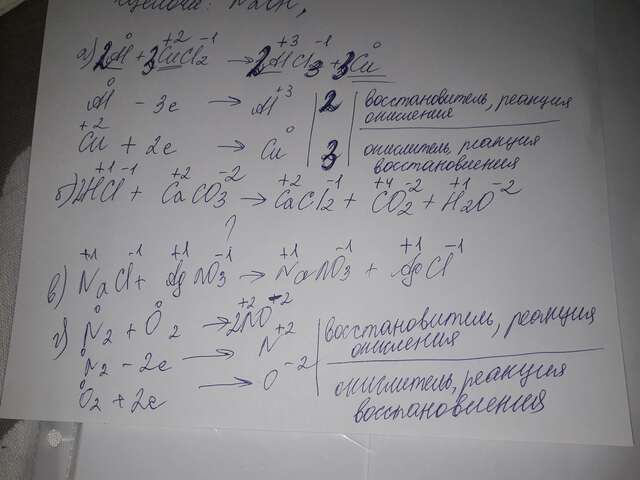 Щелочи: NaOH,
а) 2Al⁰ + 3Cu⁺²Cl₂⁻¹ → 2Al⁺³Cl₃⁻¹ + 3Cu⁰
Al⁰ - 3e → Al⁺³ | 2 | восстановитель, реакция
окисления
Cu⁺² + 2e → Cu⁰ | 3 | окислитель, реакция
восстановления
б) 2H⁺¹Cl⁻¹ + Ca⁺²CO₃⁻² → Ca⁺²Cl₂⁻¹ + C⁺⁴O₂⁻² + H₂⁺¹O⁻²
?
в) Na⁺¹Cl⁻¹ + Ag⁺¹NO₃⁻¹ → Na⁺¹NO₃⁻¹ + Ag⁺¹Cl⁻¹
г) N₂⁰ + O₂⁰ → 2N⁺²O⁻²
N₂⁰ - 2e → N⁺² | восстановитель, реакция
окисления
O₂⁰ + 2e → O⁻² | окислитель, реакция
восстановления